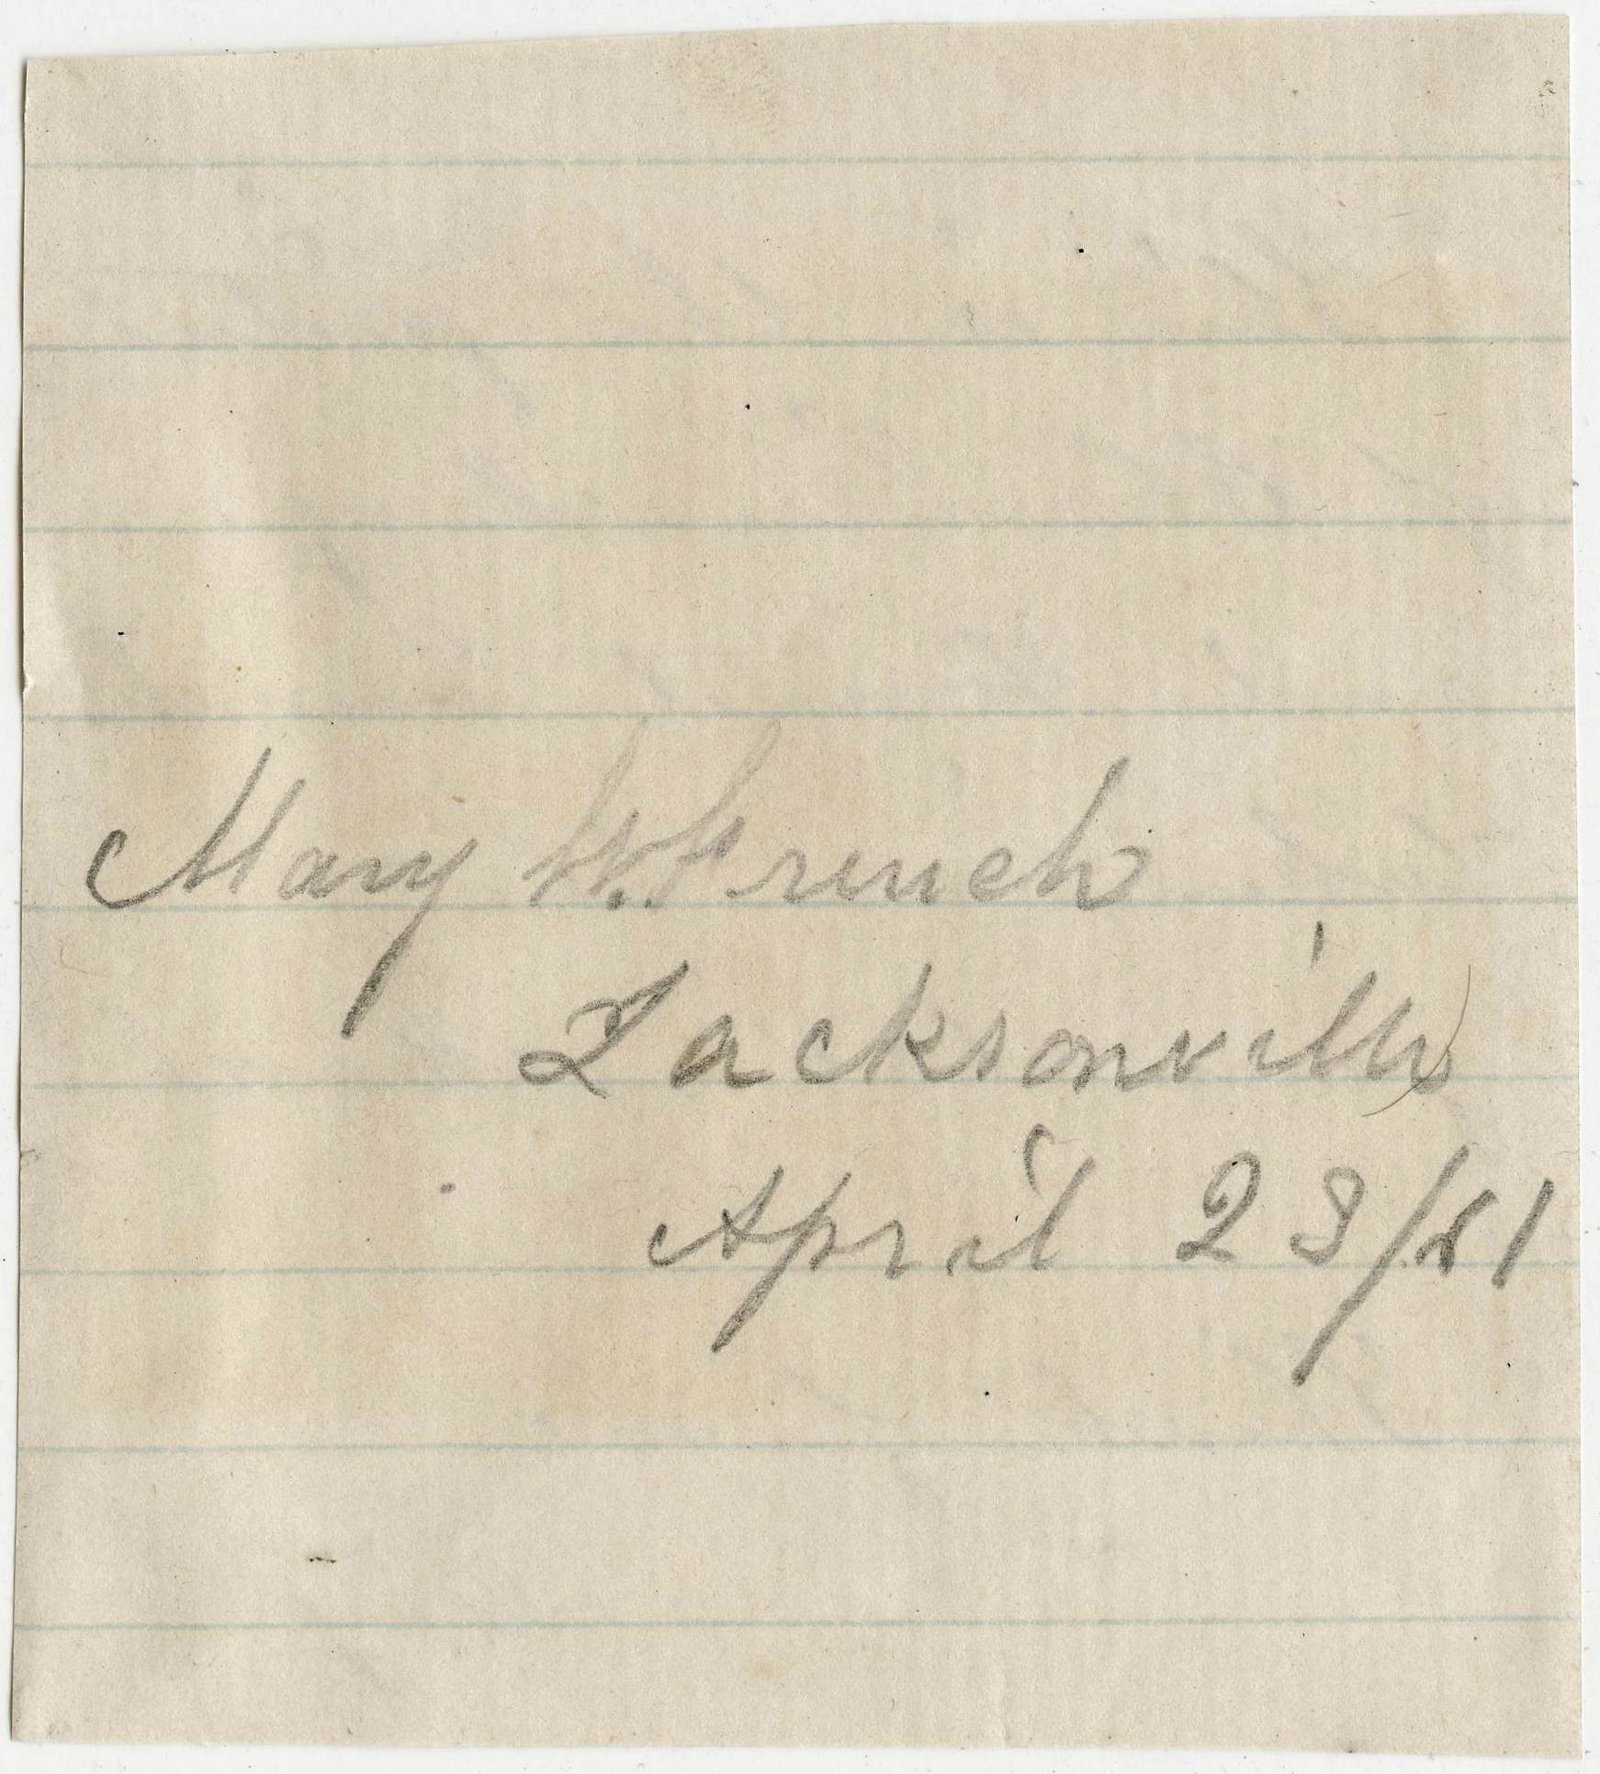 Mary W. French
Jacksonville
April 23/81